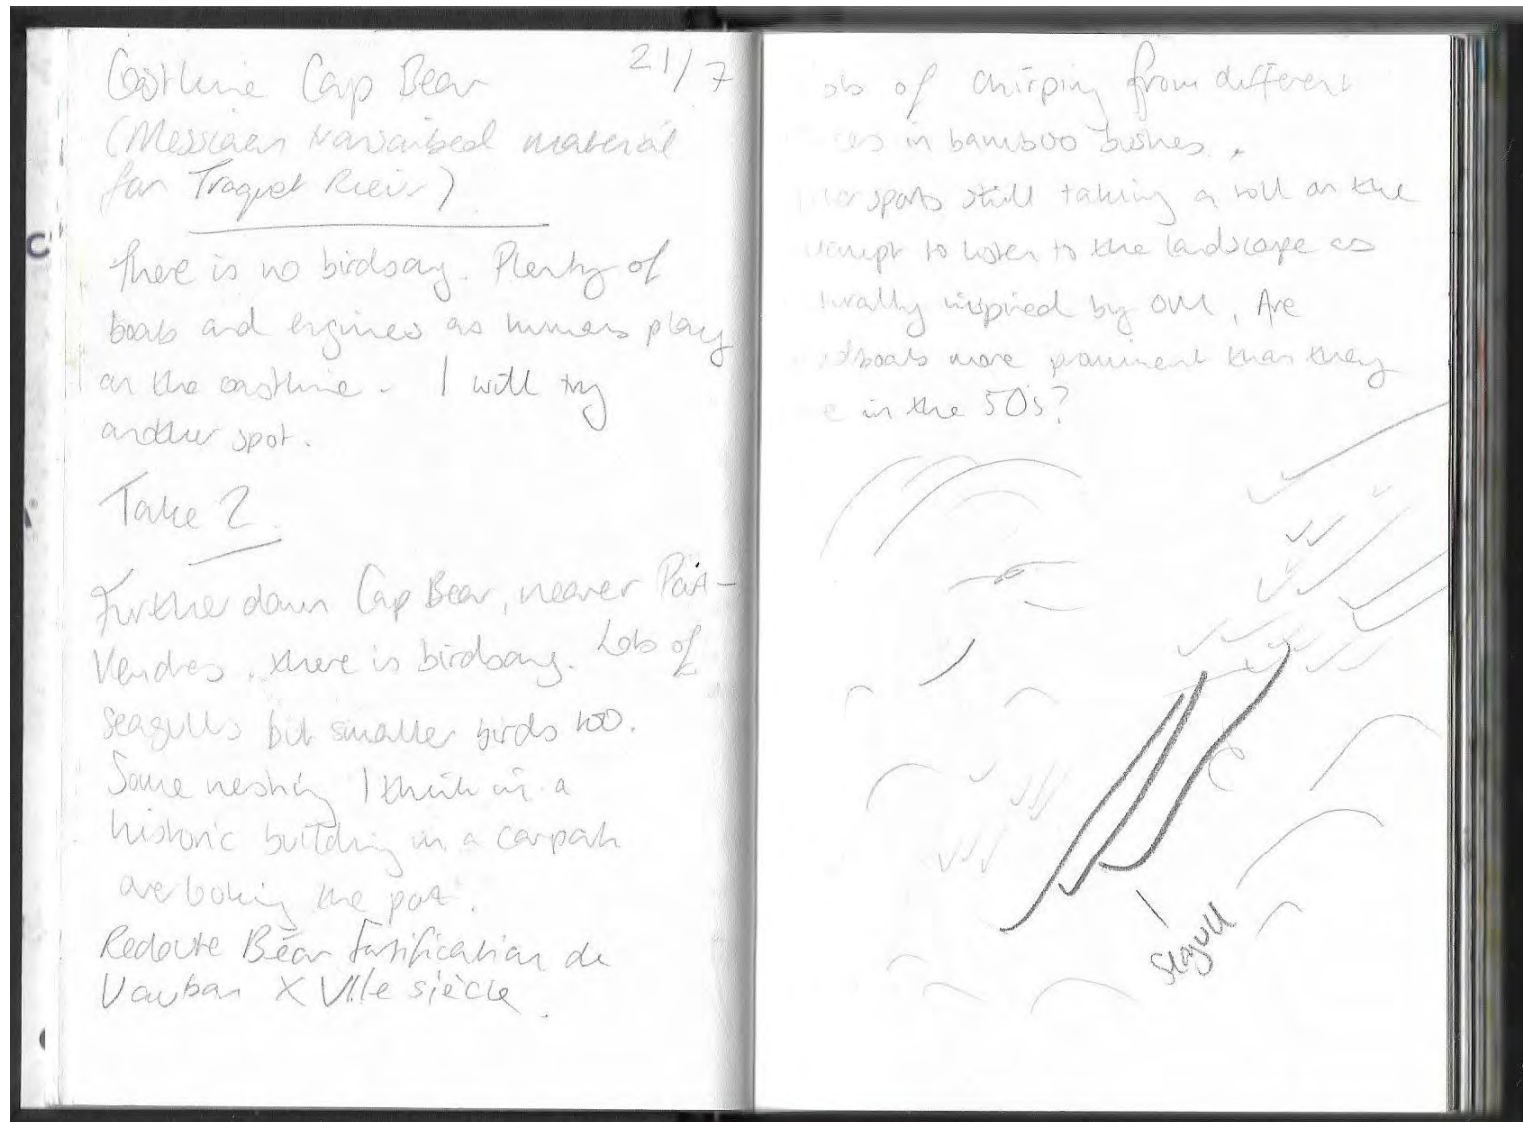 21/7
Coastline Cap Bear
(Messiaen transcribed material
for Traquet Rieur)
There is no birdsong. Plenty of
boats and engines as humans play
on the coastline. I will try
another spot.
Take 2.
Further down Cap Bear, nearer Port-
Vendres, there is birdsong. Lots of
seagulls but smaller birds too.
Some nesting I think in a
historic building in a carpark
overlooking the port.
Redoute Béar fortification de
Vauban XVIIe siècle.
of chirping from different
in bamboo bushes.
sports still taking a toll on the
to listen to the landscape as
inspired by OM. Are
more prominent than they
in the 50s?
Seagull